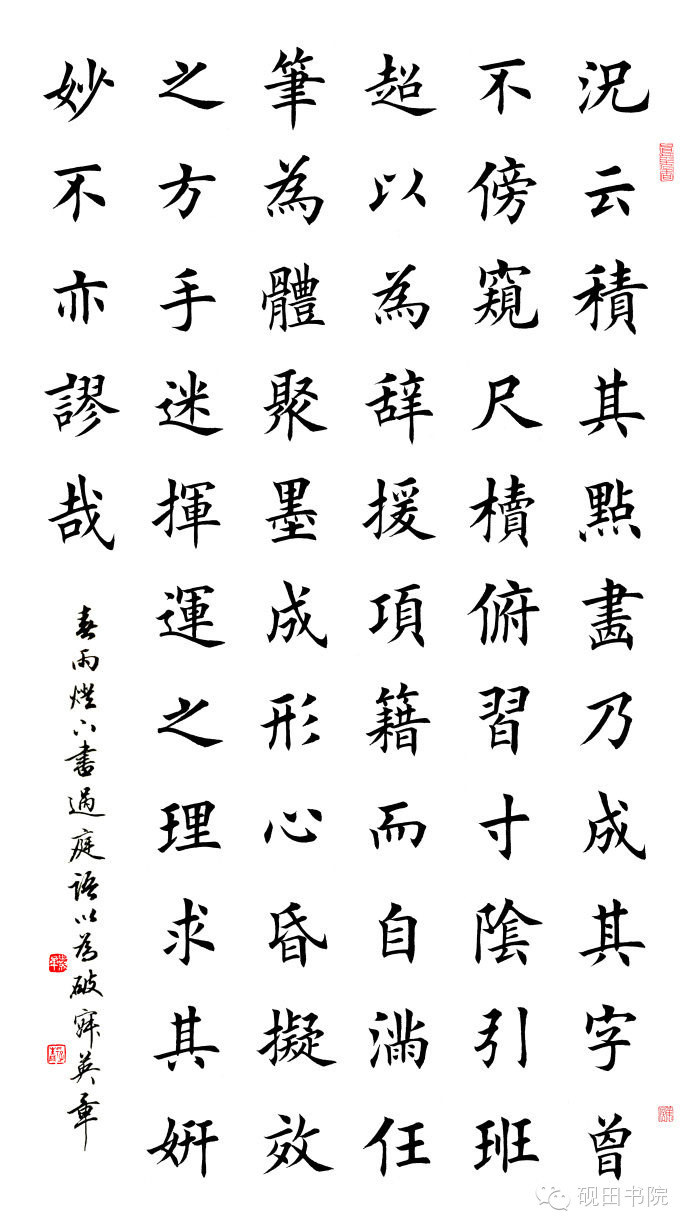 況云積其點畫乃成其字曾
不傍窺尺櫝俯習寸陰引班
超以為辞援項籍而自滿任
筆為體聚墨成形心昏擬效
之方手迷揮運之理求其妍
妙不亦謬哉
春雨燈下書過庭語以為破寐英章
砚田书院